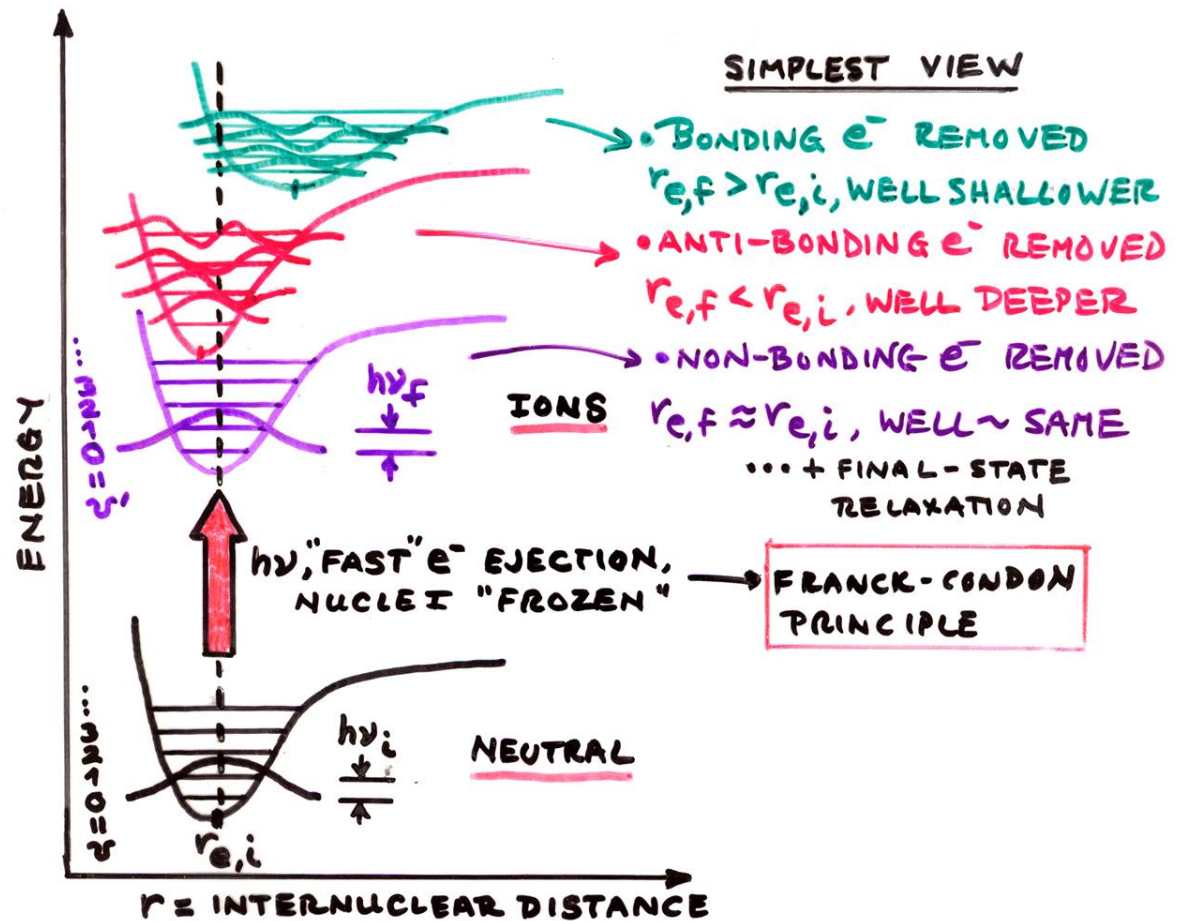 SIMPLEST VIEW
• BONDING e⁻ REMOVED
r_e,f > r_e,i, WELL SHALLOWER
• ANTI-BONDING e⁻ REMOVED
r_e,f < r_e,i, WELL DEEPER
• NON-BONDING e⁻ REMOVED
r_e,f ≈ r_e,i, WELL ~ SAME
... + FINAL-STATE
RELAXATION
hν_f
IONS
υ' = 0 1 2 3 ...
ENERGY
hν, "FAST" e⁻ EJECTION,
NUCLEI "FROZEN"
FRANCK-CONDON
PRINCIPLE
hν_i
NEUTRAL
υ = 0 1 2 3 ...
r_e,i
r = INTERNUCLEAR DISTANCE